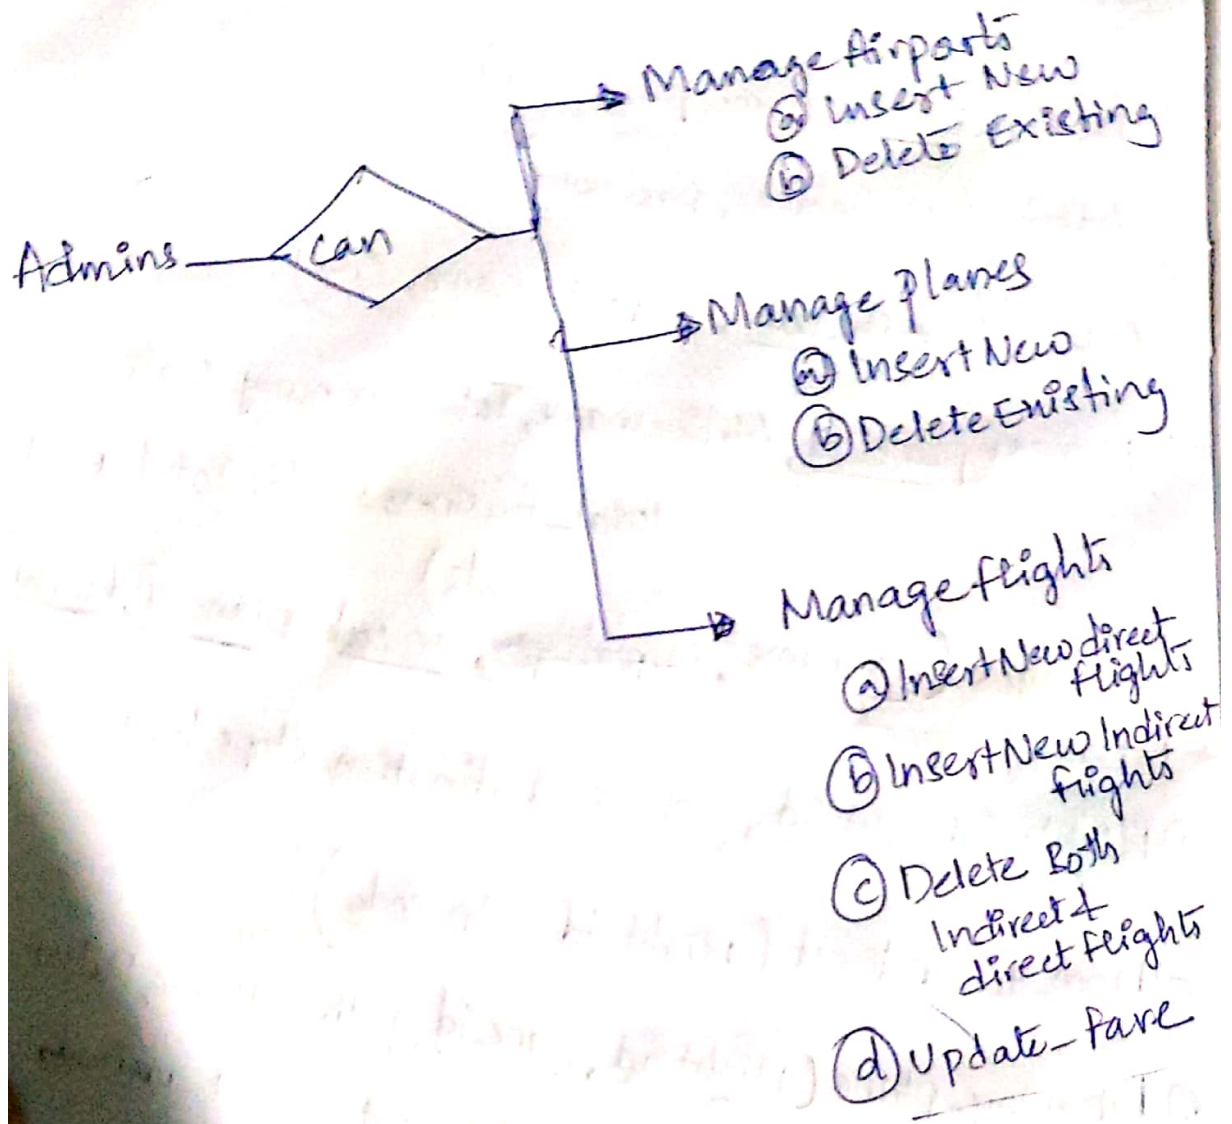 Manage Airports
ⓐ Insert New
ⓑ Delete Existing
Admins
can
Manage planes
ⓐ Insert New
ⓑ Delete Existing
Manage flights
ⓐ Insert New direct
flights
ⓑ Insert New Indirect
flights
ⓒ Delete Both
Indirect &
direct flights
ⓓ Update_fare